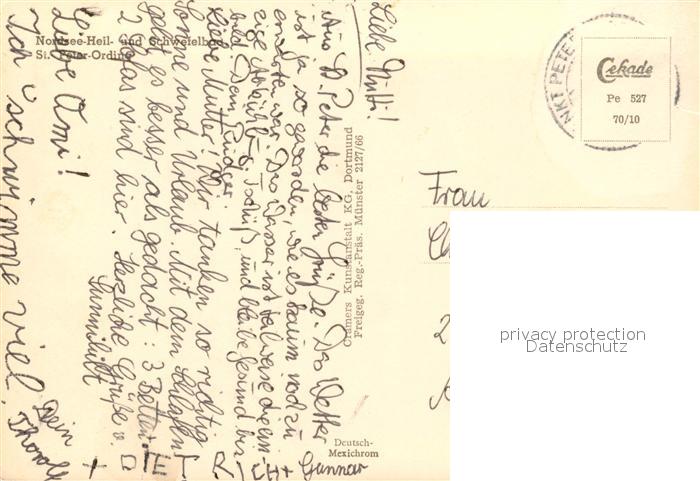 Nordsee-Heil- und Schwefelbad
St. Peter-Ording
Liebe Mutti!
Aus St. Peter die besten Grüße. Das Wetter
ist ja so geworden, wie es kaum noch zu
erwarten war. Das Wasser ist
Tschüß, und bleibe gesund bis
bald. Dein Rüdiger.
Liebe Mutter! Wir tanken so richtig
Sonne und Urlaub. Mit dem Schlafen
geht es besser als gedacht: 3 Betten
2 Sofas sind hier. Herzliche Grüße v.
Liebe Omi!
Ich schwimme viel.
Dein
+ DIETRICH + Gunnar
Cramers Kunstanstalt KG, Dortmund
Freigeg. Reg.-Präs. Münster 2127/66
Deutsch-
Mexichrom
NKT PETE
Cekade
Pe 527
70/10
Frau
privacy protection
Datenschutz